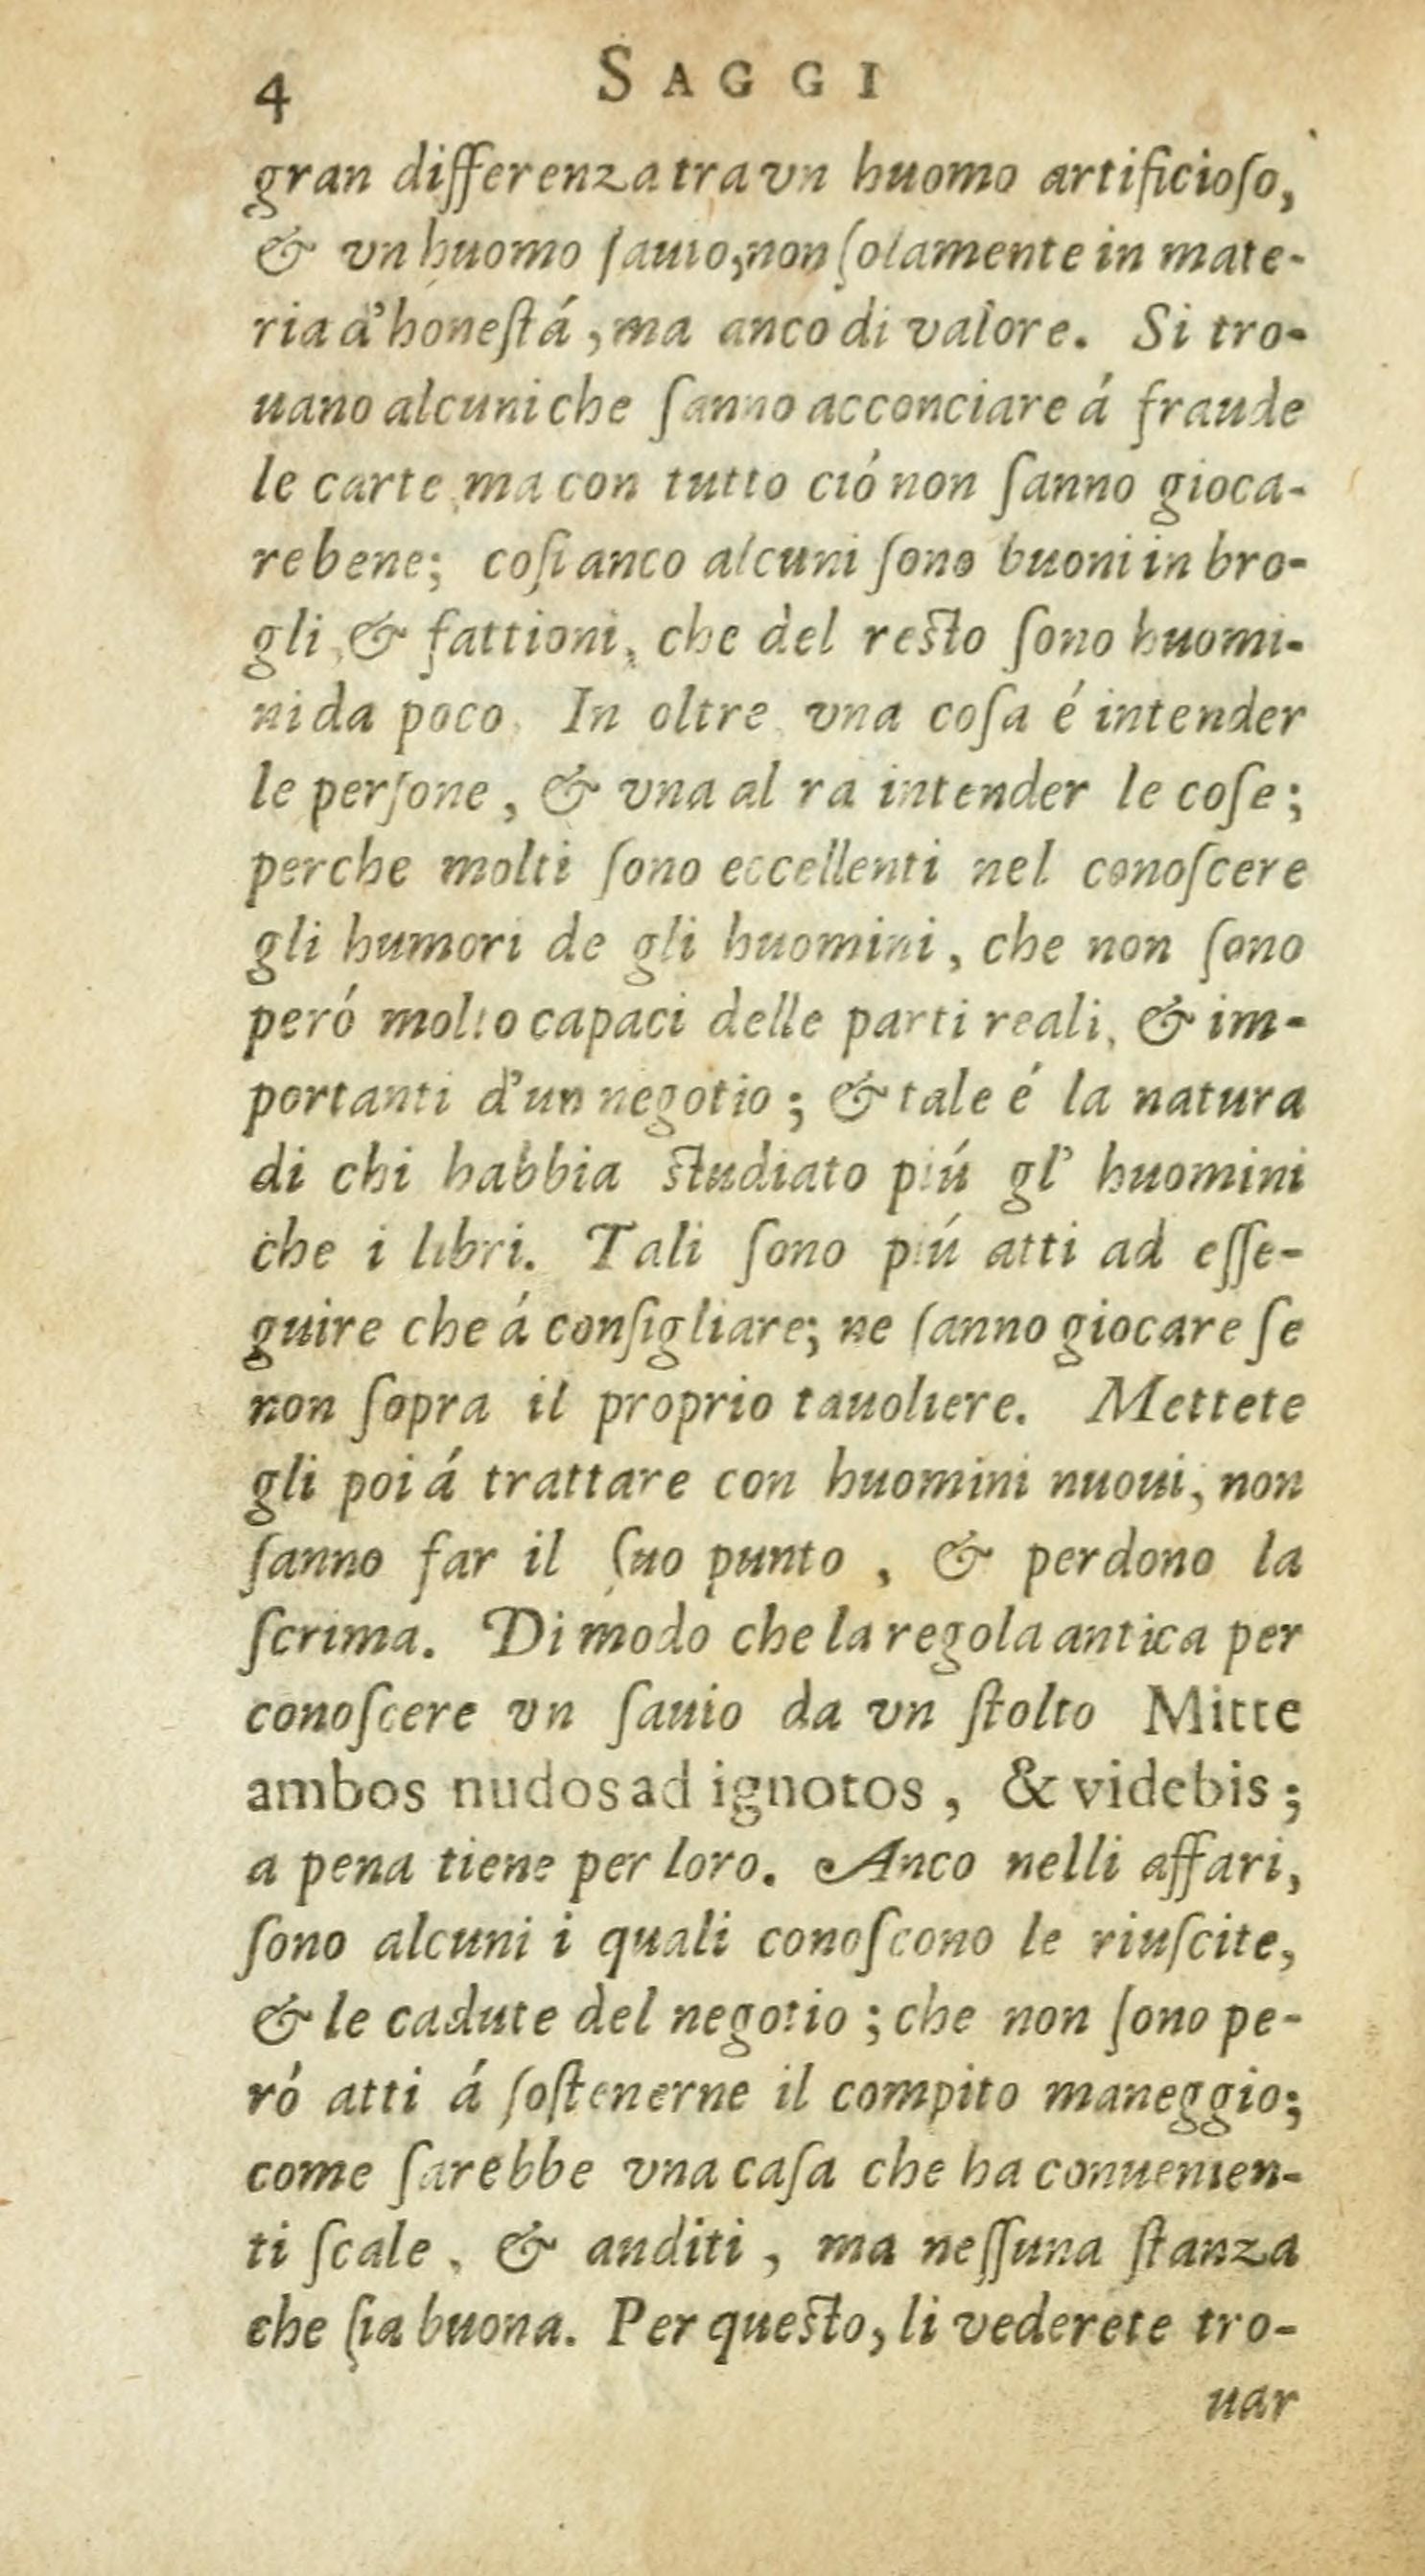 4 SAGGI
gran differenza tra vn huomo artificioſo,
& vn huomo ſauio, non ſolamente in mate-
ria d'honeſtá, ma anco di valore. Si tro-
uano alcuni che ſanno acconciare á fraude
le carte, ma con tutto ció non ſanno gioca-
re bene; coſi anco alcuni ſono buoni in bro-
gli, & fattioni, che del reſto ſono huomi-
ni da poco. In oltre, vna coſa é intender
le perſone, & vna al ra intender le coſe;
perche molti ſono eccellenti nel conoſcere
gli humori de gli huomini, che non ſono
peró molto capaci delle parti reali, & im-
portanti d'un negotio; & tale é la natura
di chi habbia ſtudiato piú gl' huomini
che i libri. Tali ſono piú atti ad eſſe-
guire che á conſigliare; ne ſanno giocare ſe
non ſopra il proprio tauoliere. Mettete
gli poi á trattare con huomini nuoui, non
ſanno far il ſuo punto, & perdono la
ſcrima. Di modo che la regola antica per
conoſcere vn ſauio da vn ſtolto Mitte
ambos nudos ad ignotos, & videbis;
a pena tiene per loro. Anco nelli affari,
ſono alcuni i quali conoſcono le riuſcite,
& le cadute del negotio; che non ſono pe-
ró atti á ſoſtenerne il compito maneggio;
come ſarebbe vna caſa che ha conuenien-
ti ſcale, & anditi, ma neſſuna ſtanza
che ſia buona. Per queſto, li vederete tro-
uar